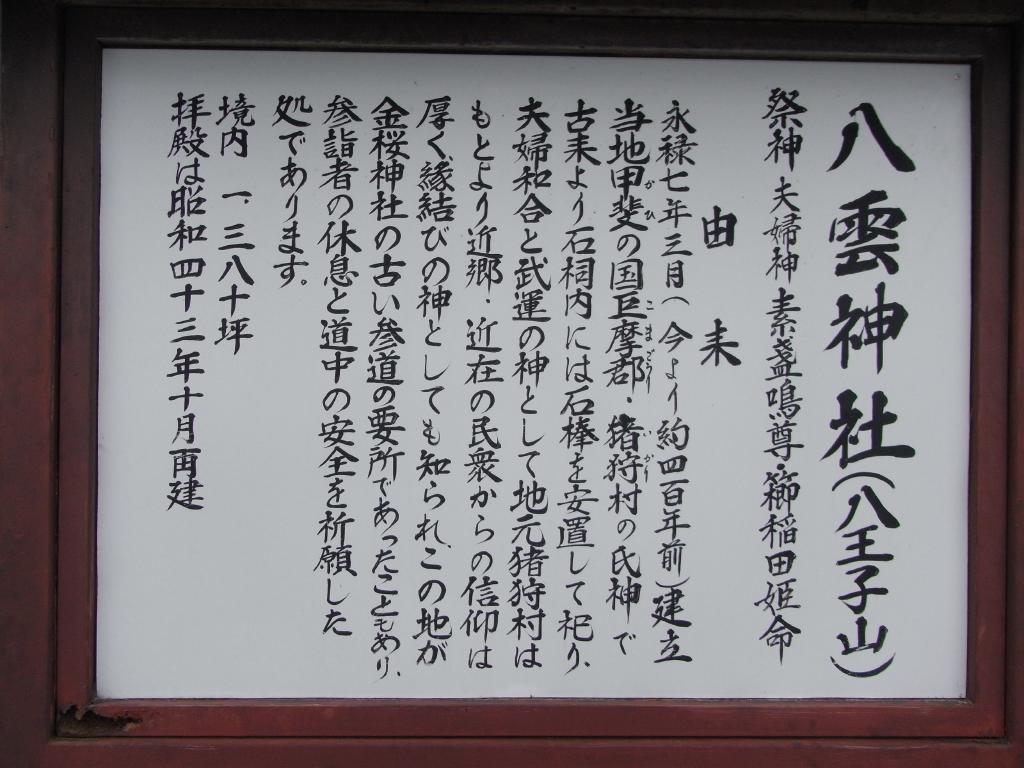 八雲神社(八王子山)
祭神 夫婦神 素盞鳴尊・櫛稲田姫命
由来
永禄七年三月(今より約四百年前)建立
当地甲斐の国巨摩郡・猪狩村の氏神で
古来より石祠内には石棒を安置して祀り、
夫婦和合と武運の神として地元猪狩村は
もとより近郷・近在の民衆からの信仰は
厚く、縁結びの神としても知られ、この地が
金桜神社の古い参道の要所であったこともあり、
参詣者の休息と道中の安全を祈願した
処であります。
境内 一、三八十坪
拝殿は昭和四十三年十月再建